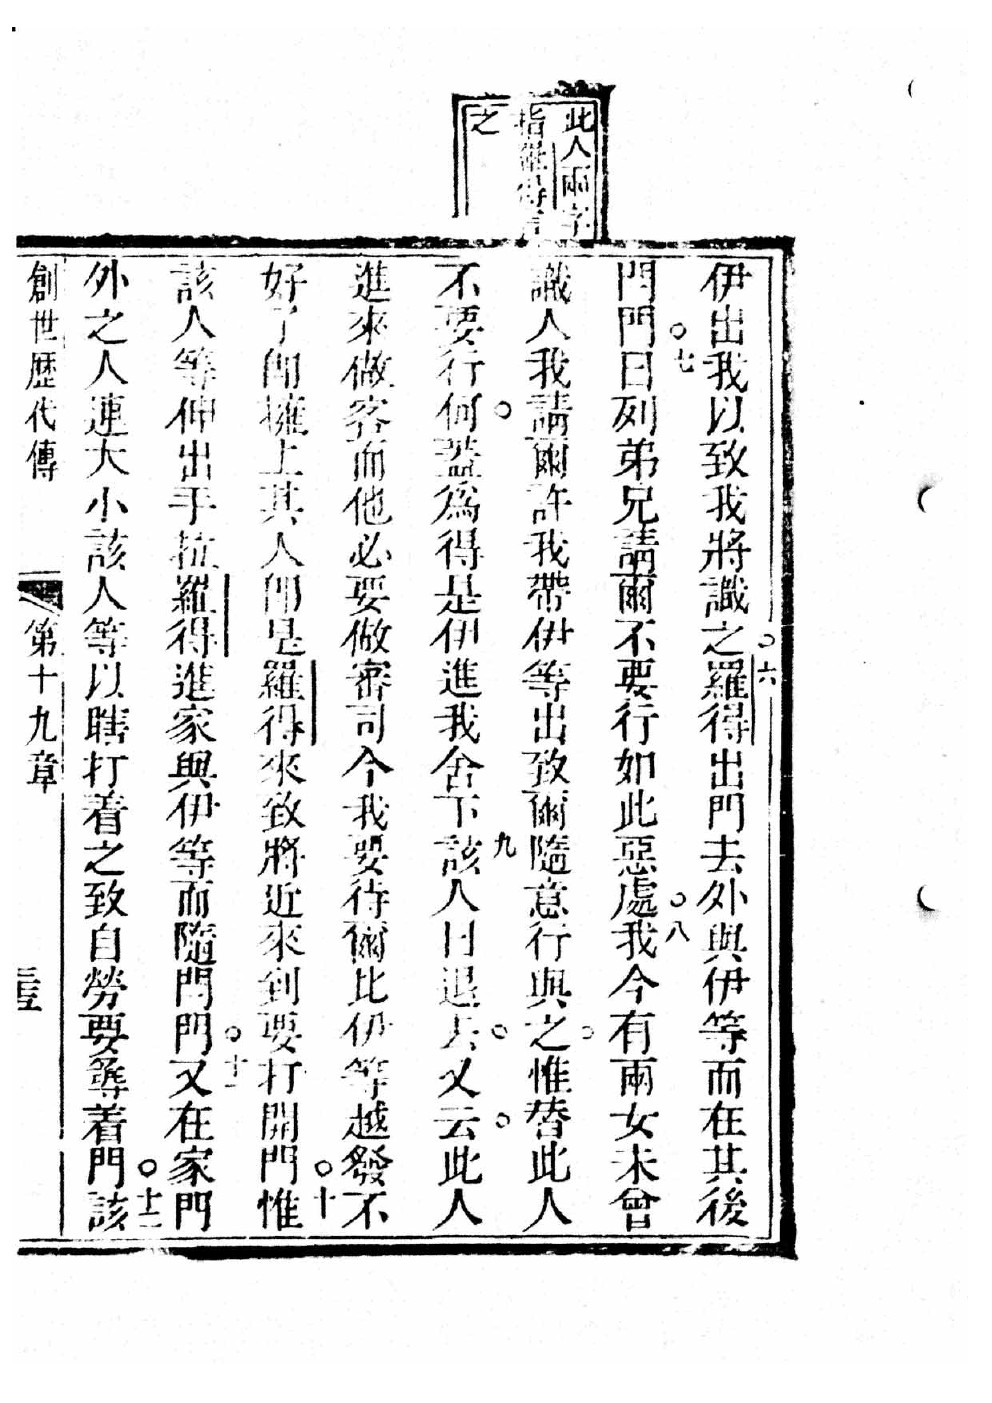 此人兩字
指羅得言
之
伊出我以致我將識之羅得出門去外與伊等而在其後
六
閂門曰列弟兄請爾不要行如此惡處我今有兩女未曾
七
八
識人我請爾許我帶伊等出致爾隨意行與之惟替此人
不要行何蓋為得是伊進我舍下該人曰退去又云此人
九
進來做客而他必要做審司今我要待爾比伊等越發不
好了即擁上其人即是羅得來致將近來到要打開門惟
十
該人等伸出手拉羅得進家與伊等而隨閂門又在家門
十一
外之人連大小該人等以瞎打着之致自勞要尋着門該
十二
創世歷代傳
第十九章